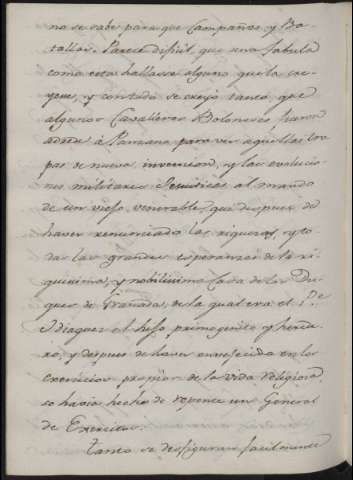 no se sabe para que Campañas, y Ba-
tallas. Parece dificil, que una fabula
como esta hallasse alguno que la cre-
yese, y con todo se creyó tanto, que
algunos Cavalleros Boloneses fueron
adrede á Panzano para ver aquellas tro-
pas de nueva invencion, y las evolucio-
nes militares Jesuiticas al mando
de un viejo venerable, que despues de
haver renunciado las riquezas, y to-
das las grandes esperanzas de la ri-
quisima, y nobilisima Casa de los Du-
ques de Granada, de la qual era el P.e
Idiaquez el hijo primogenito y here-
ro, y despues de haver envejecido en los
exercicios propios de la vida religiosa
se havia hecho de repente un General
de Exercitos.
Tanto se desfiguran facilmente